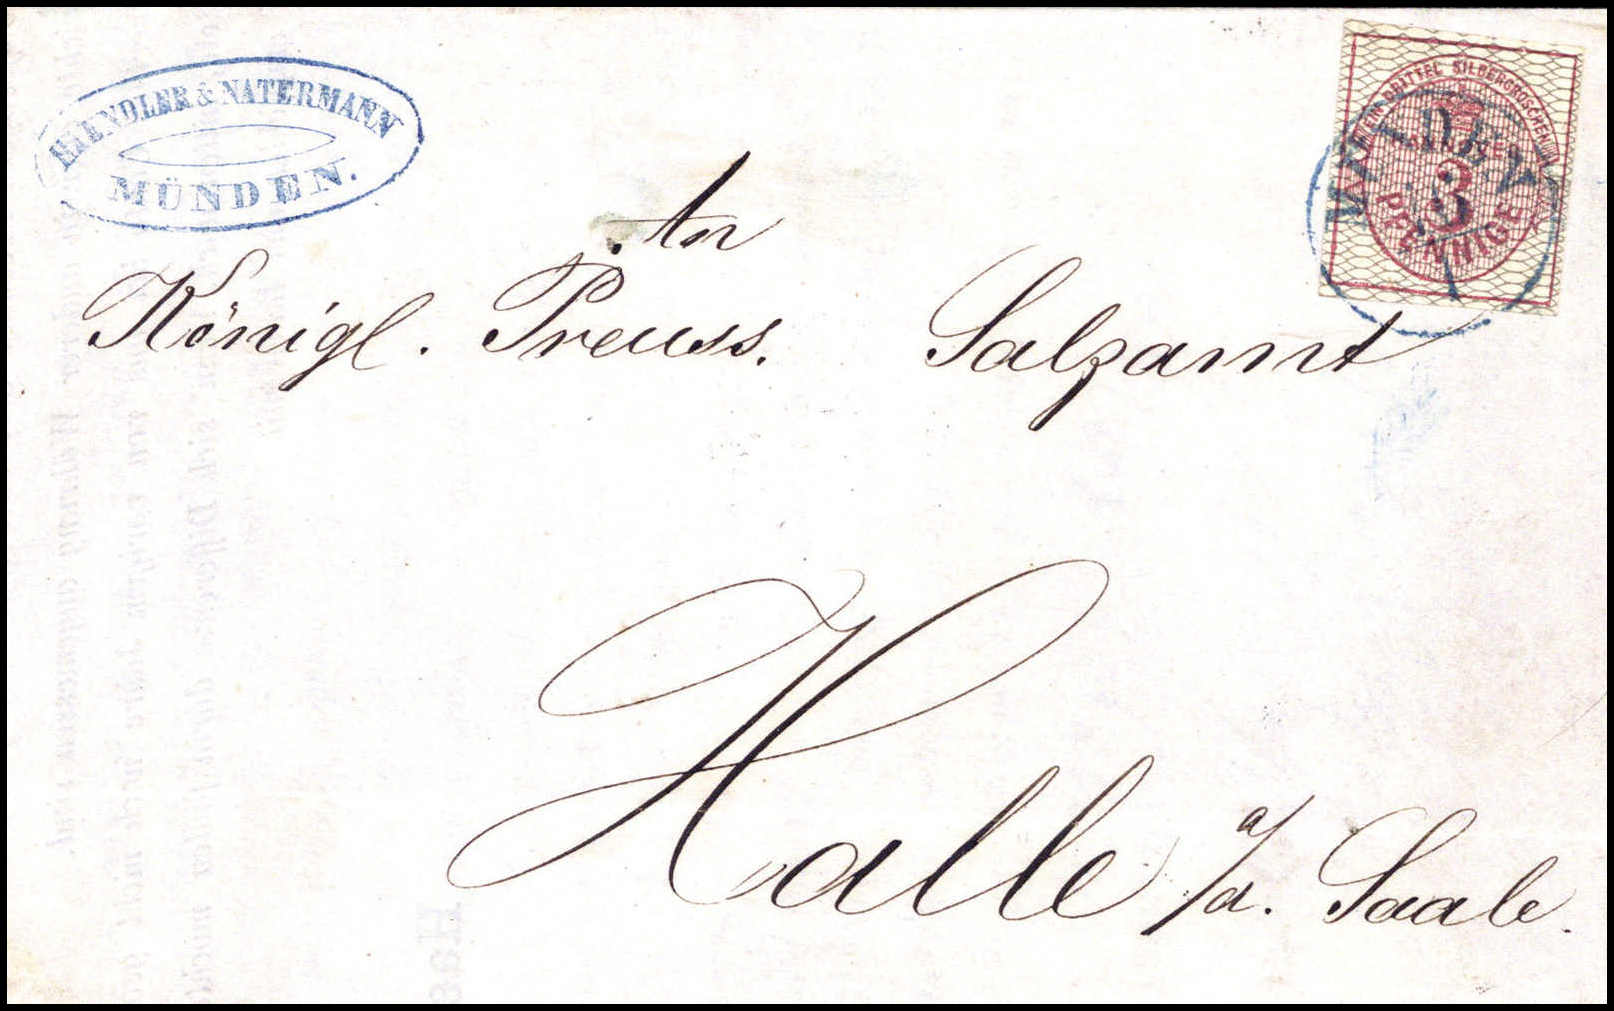 HAENDLER & NATERMANN
MÜNDEN.
EIN DRITTEL SILBERGROSCHEN
3
PFENNIGE
MÜNDEN
An
Königl. Preuss. Salzamt
Halle a/d. Saale.